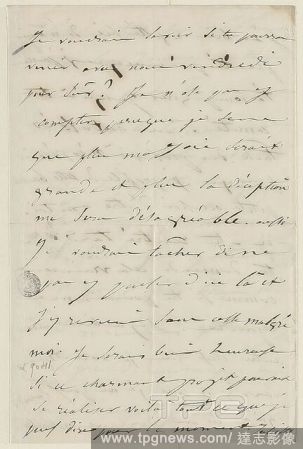 Je voudrais savoir si tu pourras
venir avec nous vendredi
pour sûr? Je n'ose pas y
compter, parce que je sens
que plus ma joie serait
grande et plus la déception
me sera désagréable. aussi
Je voudrais tâcher de ne
pas y penser d'ici là et
J'y reviens sans cesse malgré
moi. Je serais bien heureuse
si ce charmant projet pouvait
se réaliser voilà tout ce que je
puis dire pour le moment
TPG
www.tpgnews.com/達志影像